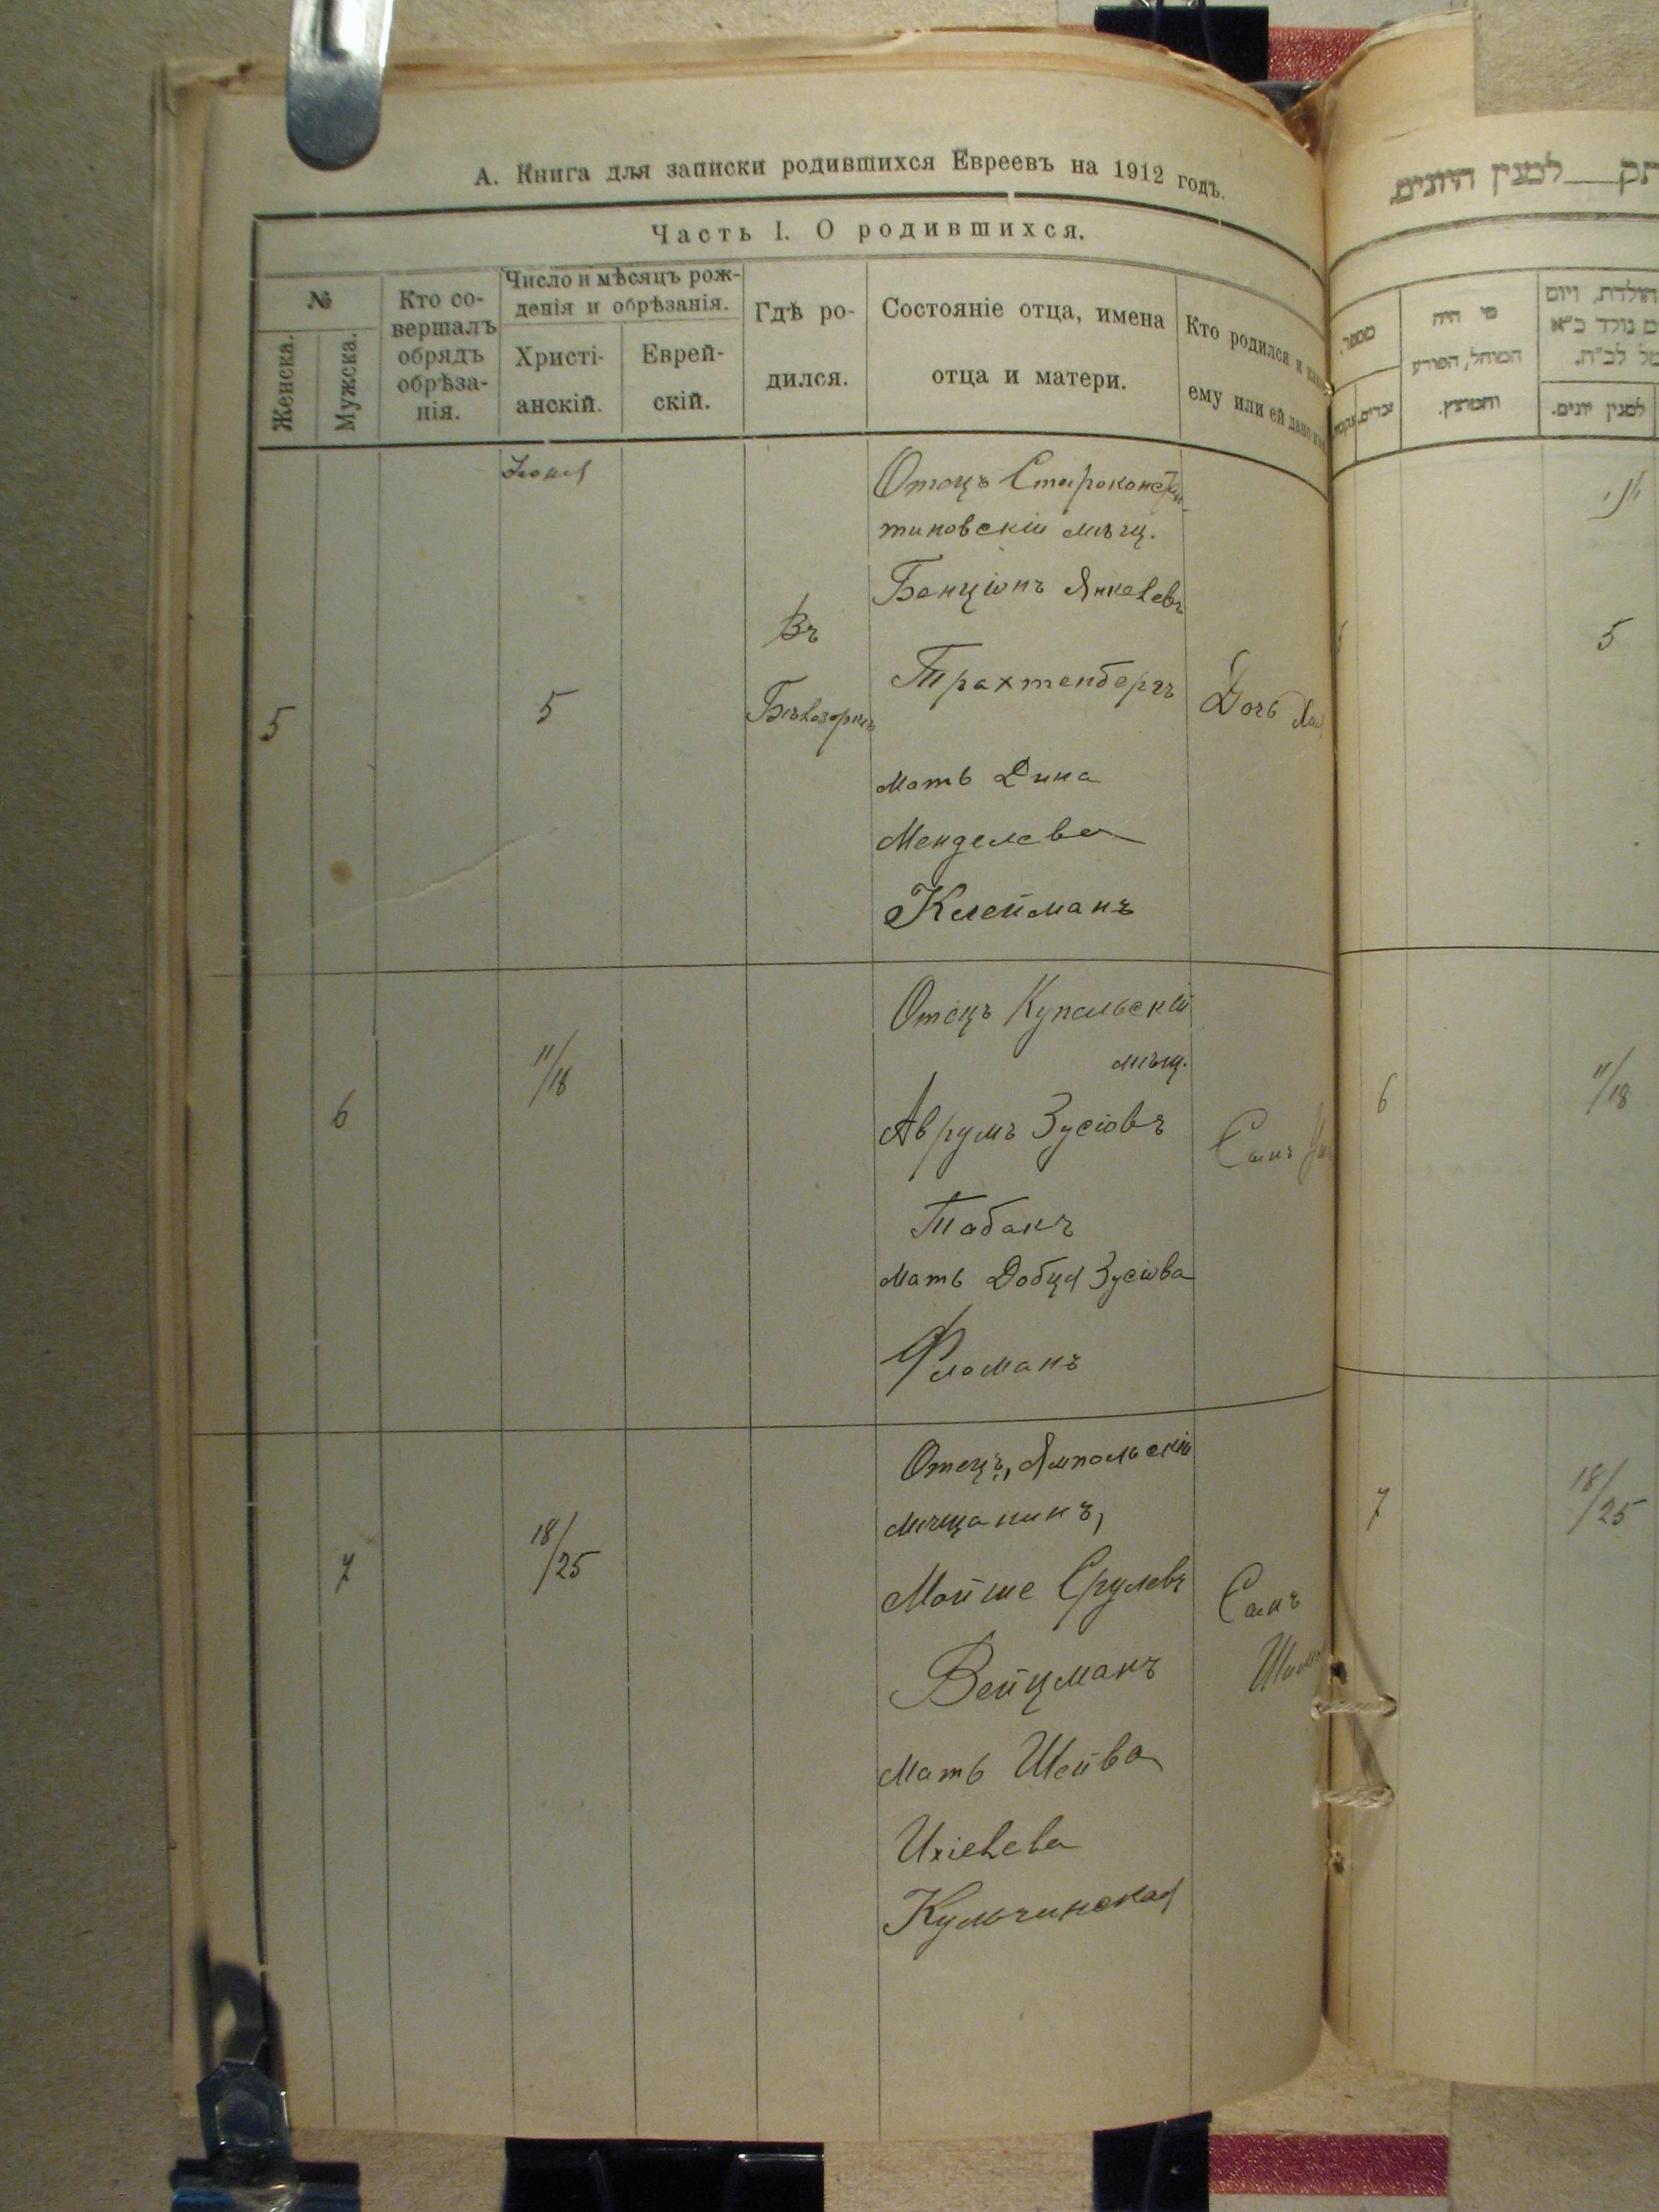 А. Книга для записки родившихся Евреевъ на 1912 годъ.
Часть I. О родившихся.
№
Женска.
Мужска.
Кто со-
вершалъ
обрядъ
обрѣза-
нія.
Число и мѣсяцъ рож-
денія и обрѣзанія.
Христі-
анскій.
Еврей-
скій.
Гдѣ ро-
дился.
Состояніе отца, имена
отца и матери.
Кто родился и
ему или ей дано
Отецъ Староконстан-
тиновскій мѣщ.
Бенціонъ Янкелевъ
Трахтенбергъ
мать Дина
Менделева
Клейманъ
5
5
Въ
Бѣлозоркѣ
Дочь
Отецъ Купельскій
мѣщ.
Аврумъ Зусіовъ
Табакъ
мать Добця Зусіова
6
11/18
Сынъ
Отецъ, Ямпольскій
мѣщанинъ,
Мойше Срулевъ
Вейцманъ
мать Шейва
Ихіелева
Кульчинская
7
18/25
Сынъ
למנין היונים
מספר
מי היה
המוהל, הפורע
והמוצץ.
הולדת, ויום
זכרים
למנין יונים.
יוני
5
6
11/18
7
18/25